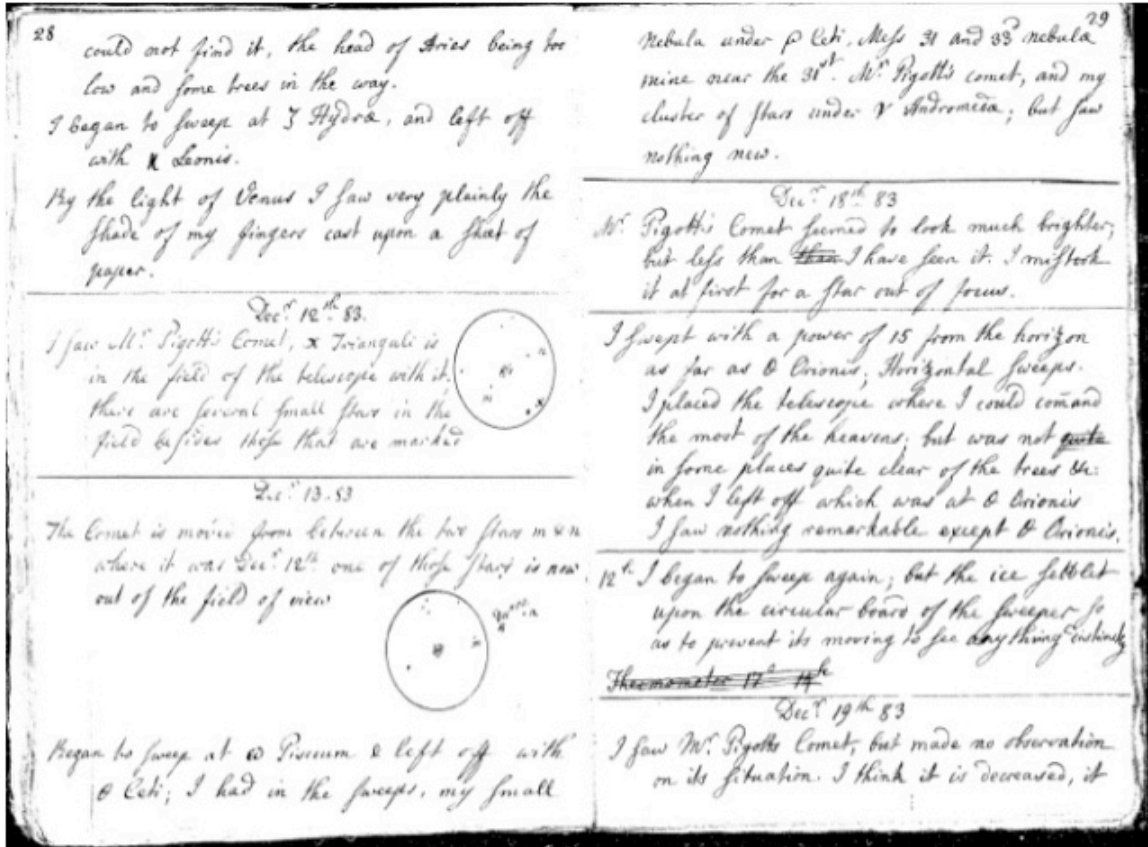 28
could not find it, the head of Aries being too
low and some trees in the way.
I began to sweep at ζ Hydræ, and left off
with χ Leonis.
By the light of Venus I saw very plainly the
shade of my fingers cast upon a sheet of
paper.
Decr. 12th. 83.
I saw Mr. Pigotts Comet, x Trianguli is
in the field of the telescope with it.
there are several small stars in the
field besides those that are marked
n
m
x
Decr. 13. 83
The Comet is moved from between the two stars m & n
where it was Decr. 12th. one of those stars is now
out of the field of view
n
Began to sweep at ω Piscium & left off with
θ Ceti; I had in the sweeps, my small
29
Nebula under β Ceti, Mess 31 and 33d nebula
mine near the 31st. Mr. Pigotts comet, and my
cluster of stars under γ Andromeda; but saw
nothing new.
Decr. 18th 83
Mr. Pigotts Comet seemed to look much brighter,
but less than than I have seen it. I mistook
it at first for a star out of focus.
I swept with a power of 15 from the horizon
as far as θ Orionis; Horizontal sweeps.
I placed the telescope where I could comand
the most of the heavens; but was not quite
in some places quite clear of the trees &c.
when I left off which was at θ Orionis
I saw nothing remarkable except θ Orionis.
12h I began to sweep again; but the ice settlet
upon the circular board of the sweeper so
as to prevent its moving to see anything distinctly
Thermometer 17°
Decr. 19th 83
I saw Mr. Pigotts Comet, but made no observation
on its situation. I think it is decreased, it